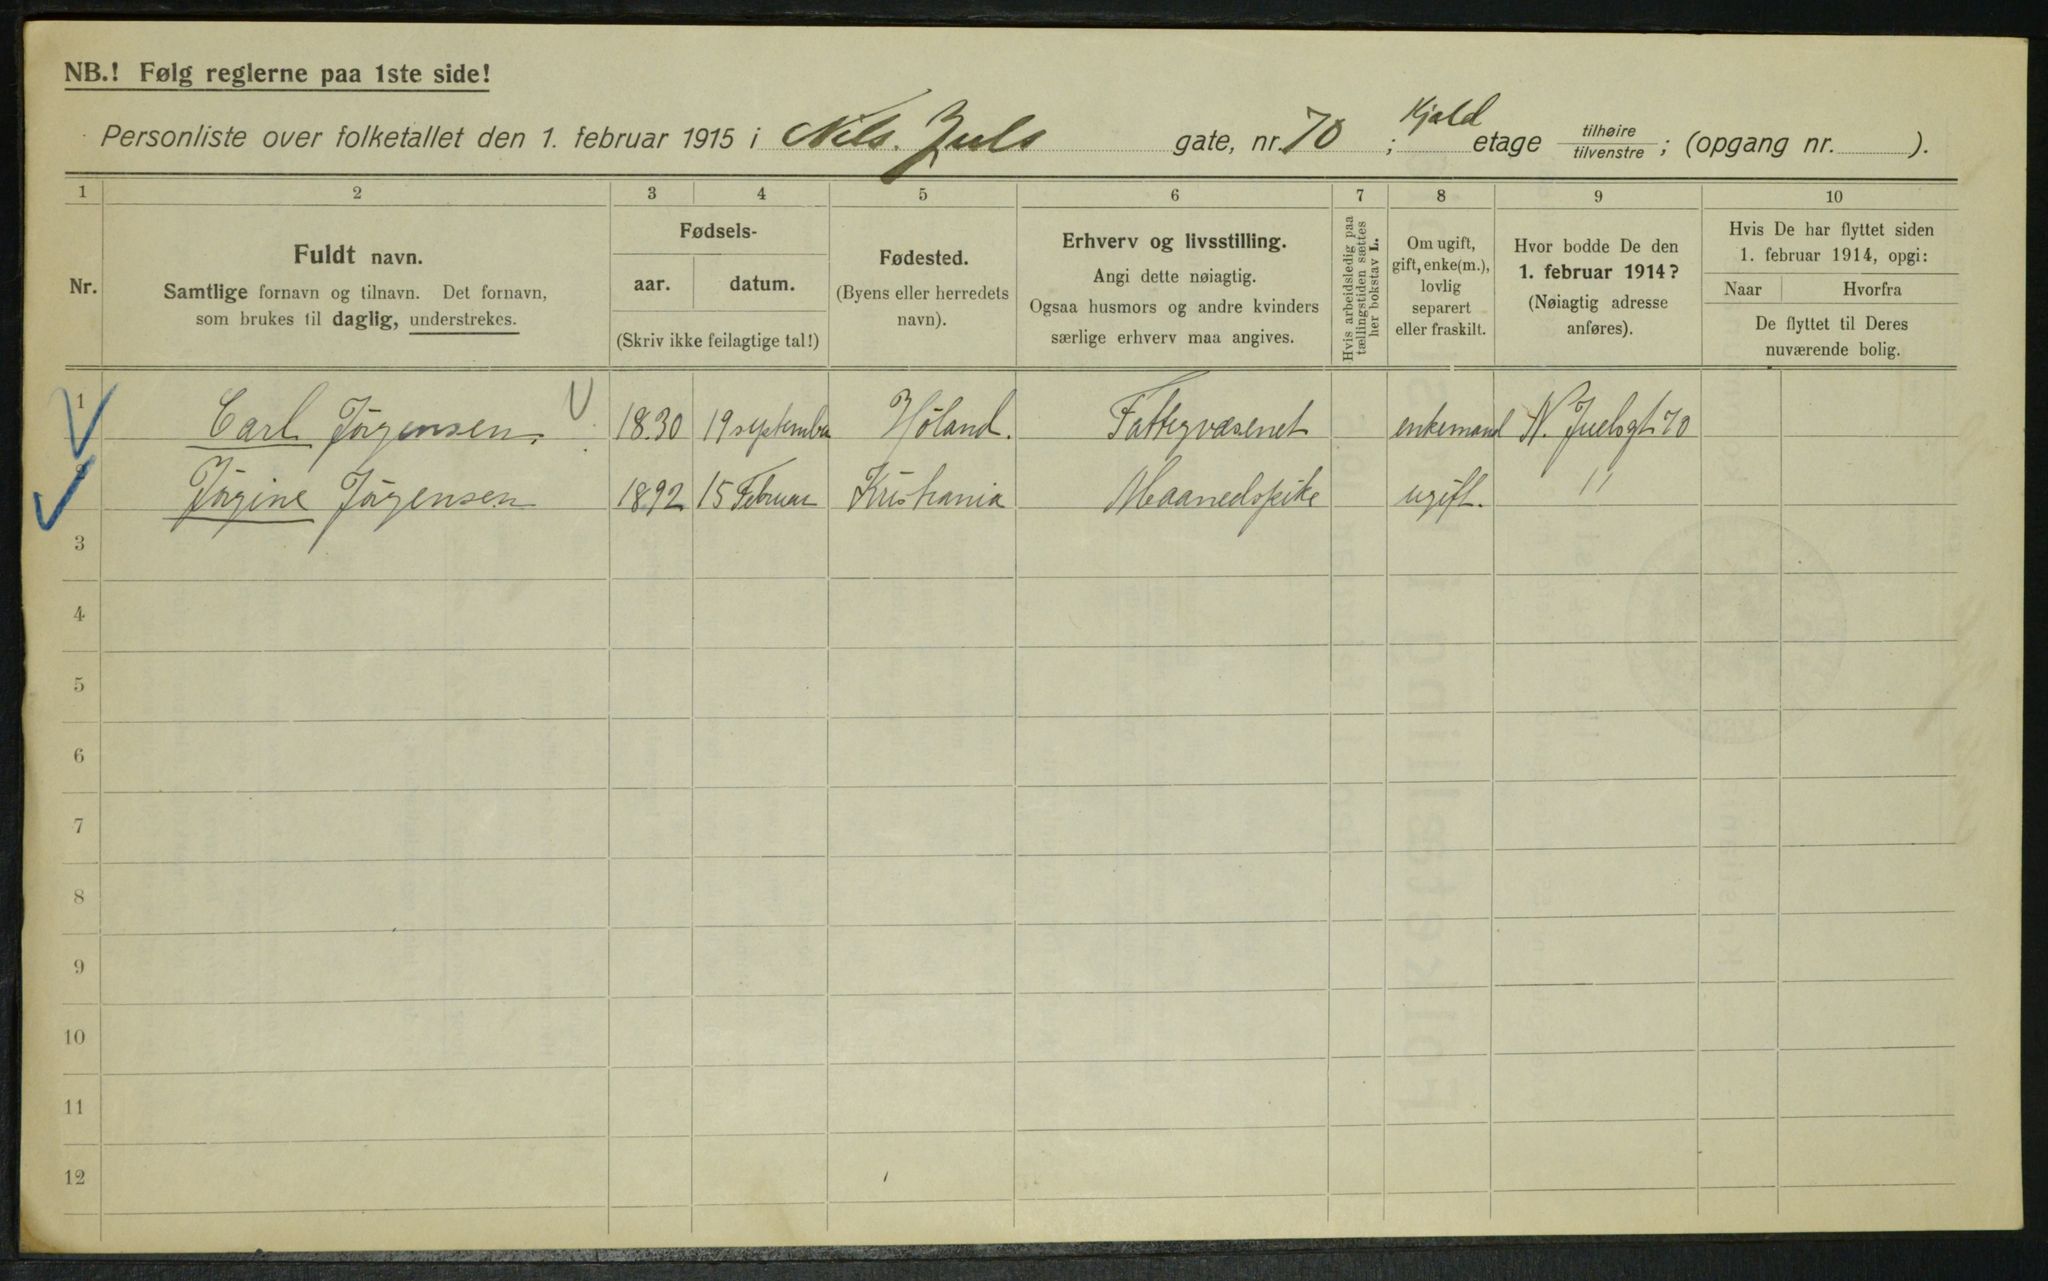 NB.! Følg reglerne paa 1ste side!
Personliste over folketallet den 1. februar 1915 i Nils. Juls gate, nr. 70 ; Kjeld etage tilhøire tilvenstre ; (opgang nr. ).
1 2 3 4 5 6 7 8 9 10
Nr.
Fuldt navn.
Samtlige fornavn og tilnavn. Det fornavn,
som brukes til daglig, understrekes.
Fødsels-
aar. datum.
(Skriv ikke feilagtige tal!)
Fødested.
(Byens eller herredets
navn).
Erhverv og livsstilling.
Angi dette nøiagtig.
Ogsaa husmors og andre kvinders
særlige erhverv maa angives.
Hvis arbeidsledig paa
tællingstiden sættes
her bokstav L.
Om ugift,
gift, enke(m.),
lovlig
separert
eller fraskilt.
Hvor bodde De den
1. februar 1914?
(Nøiagtig adresse
anføres).
Hvis De har flyttet siden
1. februar 1914, opgi:
Naar Hvorfra
De flyttet til Deres
nuværende bolig.
1 Carl Jörgensen. 1830 19 september Höland. Fattigvæsenet enkemand N. Juelsgt 70
2 Jörgine Jörgensen 1892 15 Februar Kristiania Maanedspike ugift. "
3
4
5
6
7
8
9
10
11
12